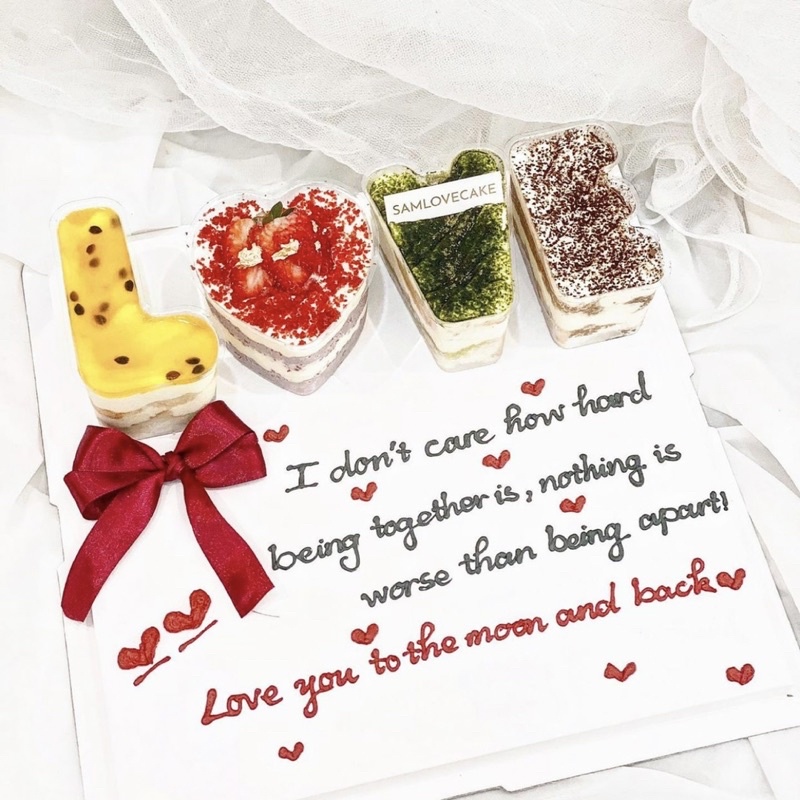 SAMLOVECAKE
I don't care how hard
being together is, nothing is
worse than being apart!
Love you to the moon and back